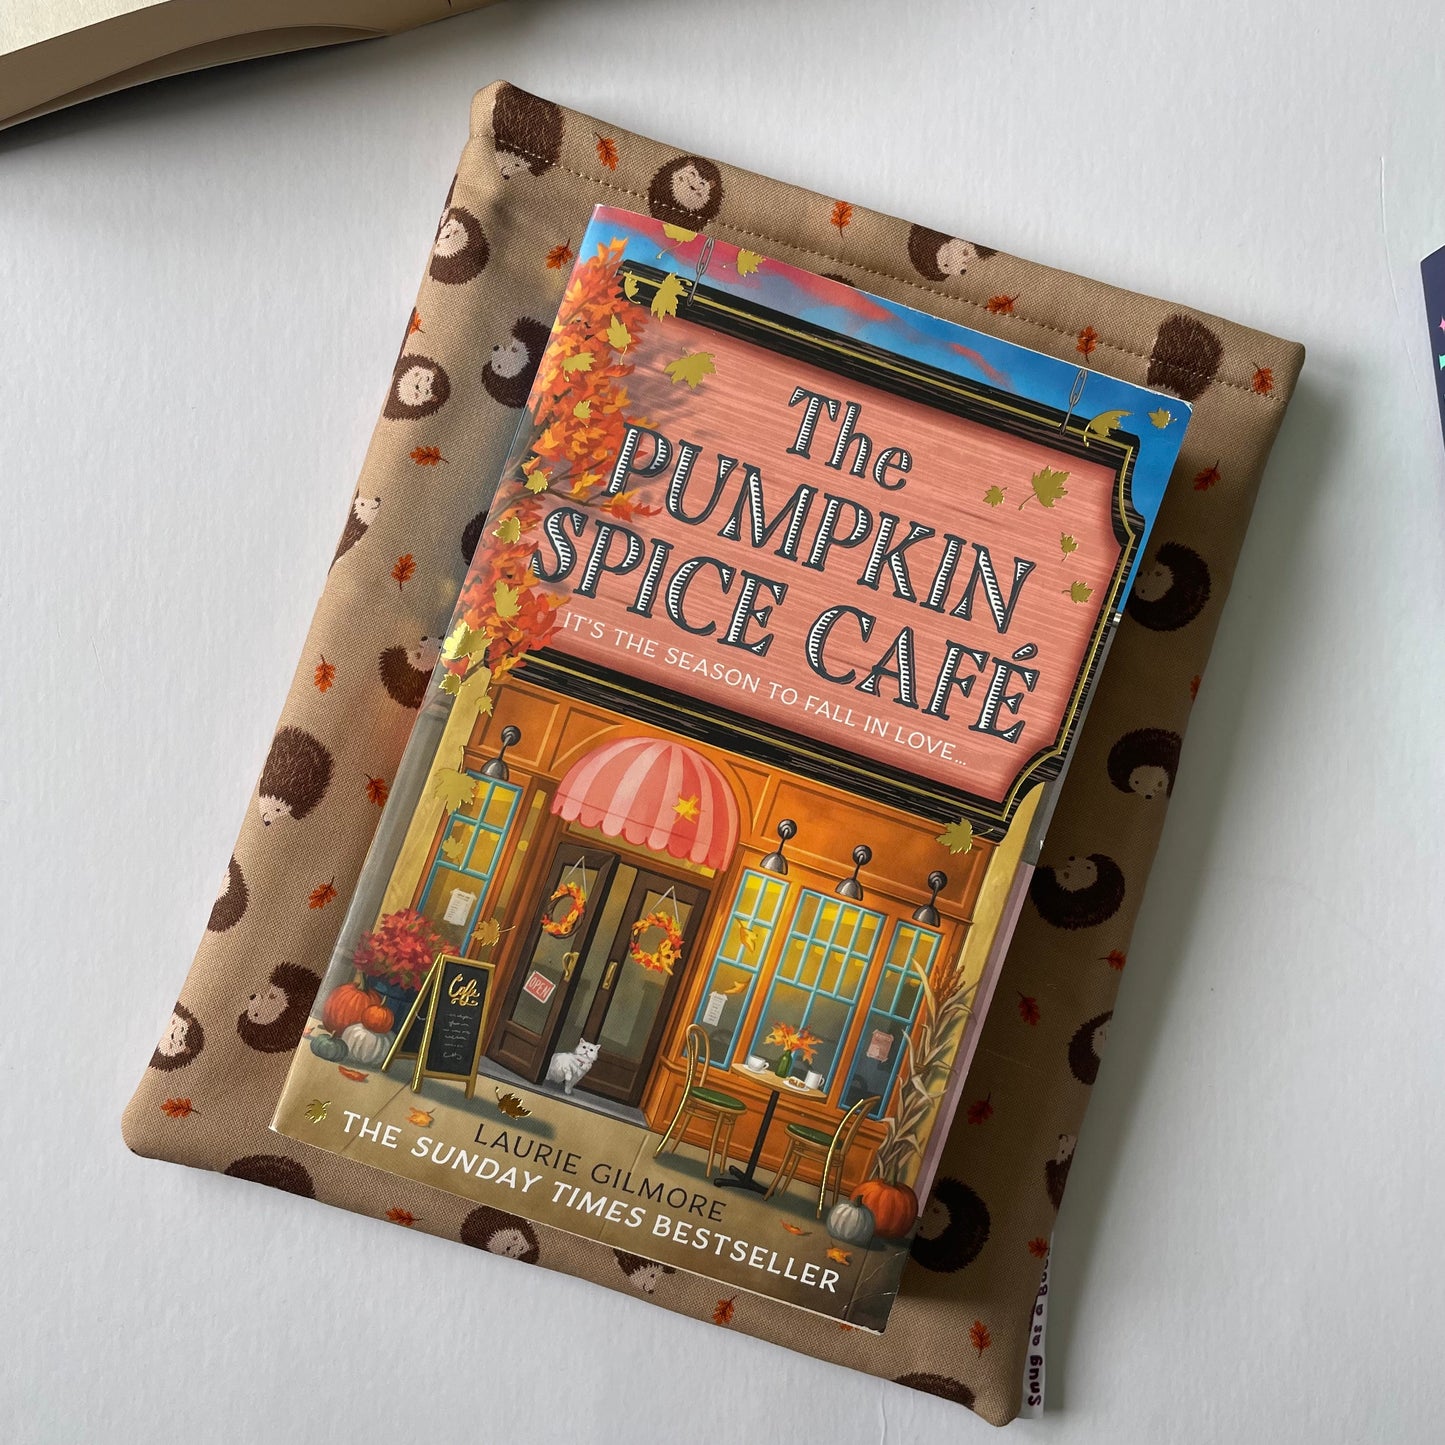 The
PUMPKIN
SPICE CAFÉ
IT'S THE SEASON TO FALL IN LOVE...
OPEN
Cafe
LAURIE GILMORE
THE SUNDAY TIMES BESTSELLER
Snug as a